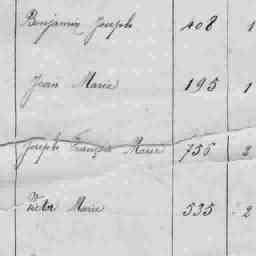 Benjamin Joseph 408 1
Jean Marie 195 1
Joseph François Marie 756 3
Victor Marie 535 2